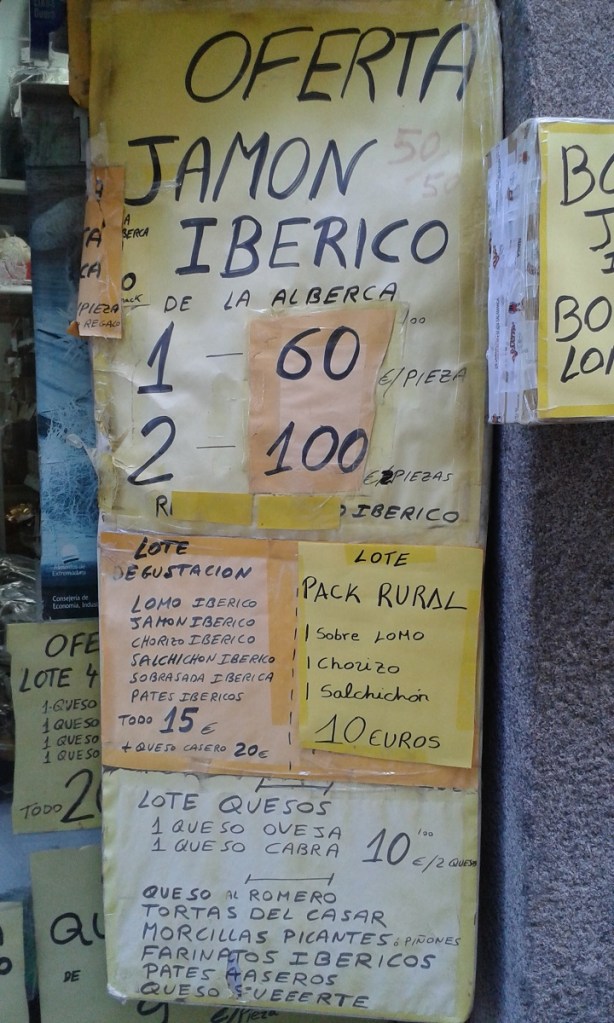 OFERTA
JAMON
50
50
IBERICO
DE LA ALBERCA
1 - 60 €/PIEZA
2 - 100 €/2PIEZAS
IBERICO
BERCA
PIEZA
REGALO
LOTE
DEGUSTACION
LOMO IBERICO
JAMON IBERICO
CHORIZO IBERICO
SALCHICHON IBERICO
SOBRASADA IBERICA
PATES IBERICOS
TODO 15 €
+ QUESO CASERO 20€
LOTE
PACK RURAL
1 Sobre LOMO
1 Chorizo
1 Salchichón
10 EUROS
LOTE QUESOS
1 QUESO OVEJA
1 QUESO CABRA
10'00 €/2 QUESOS
QUESO AL ROMERO
TORTAS DEL CASAR
MORCILLAS PICANTES ó PIÑONES
FARINATOS IBERICOS
PATES KASEROS
QUESO SUEEERTE
Consejería de
Economía, Indus
OFE
LOTE 4
1 QUESO
1 QUESO
1 QUESO
1 QUESO
TODO 20
QU
DE
9 €/Pieza
BO
J
I
BO
LOM